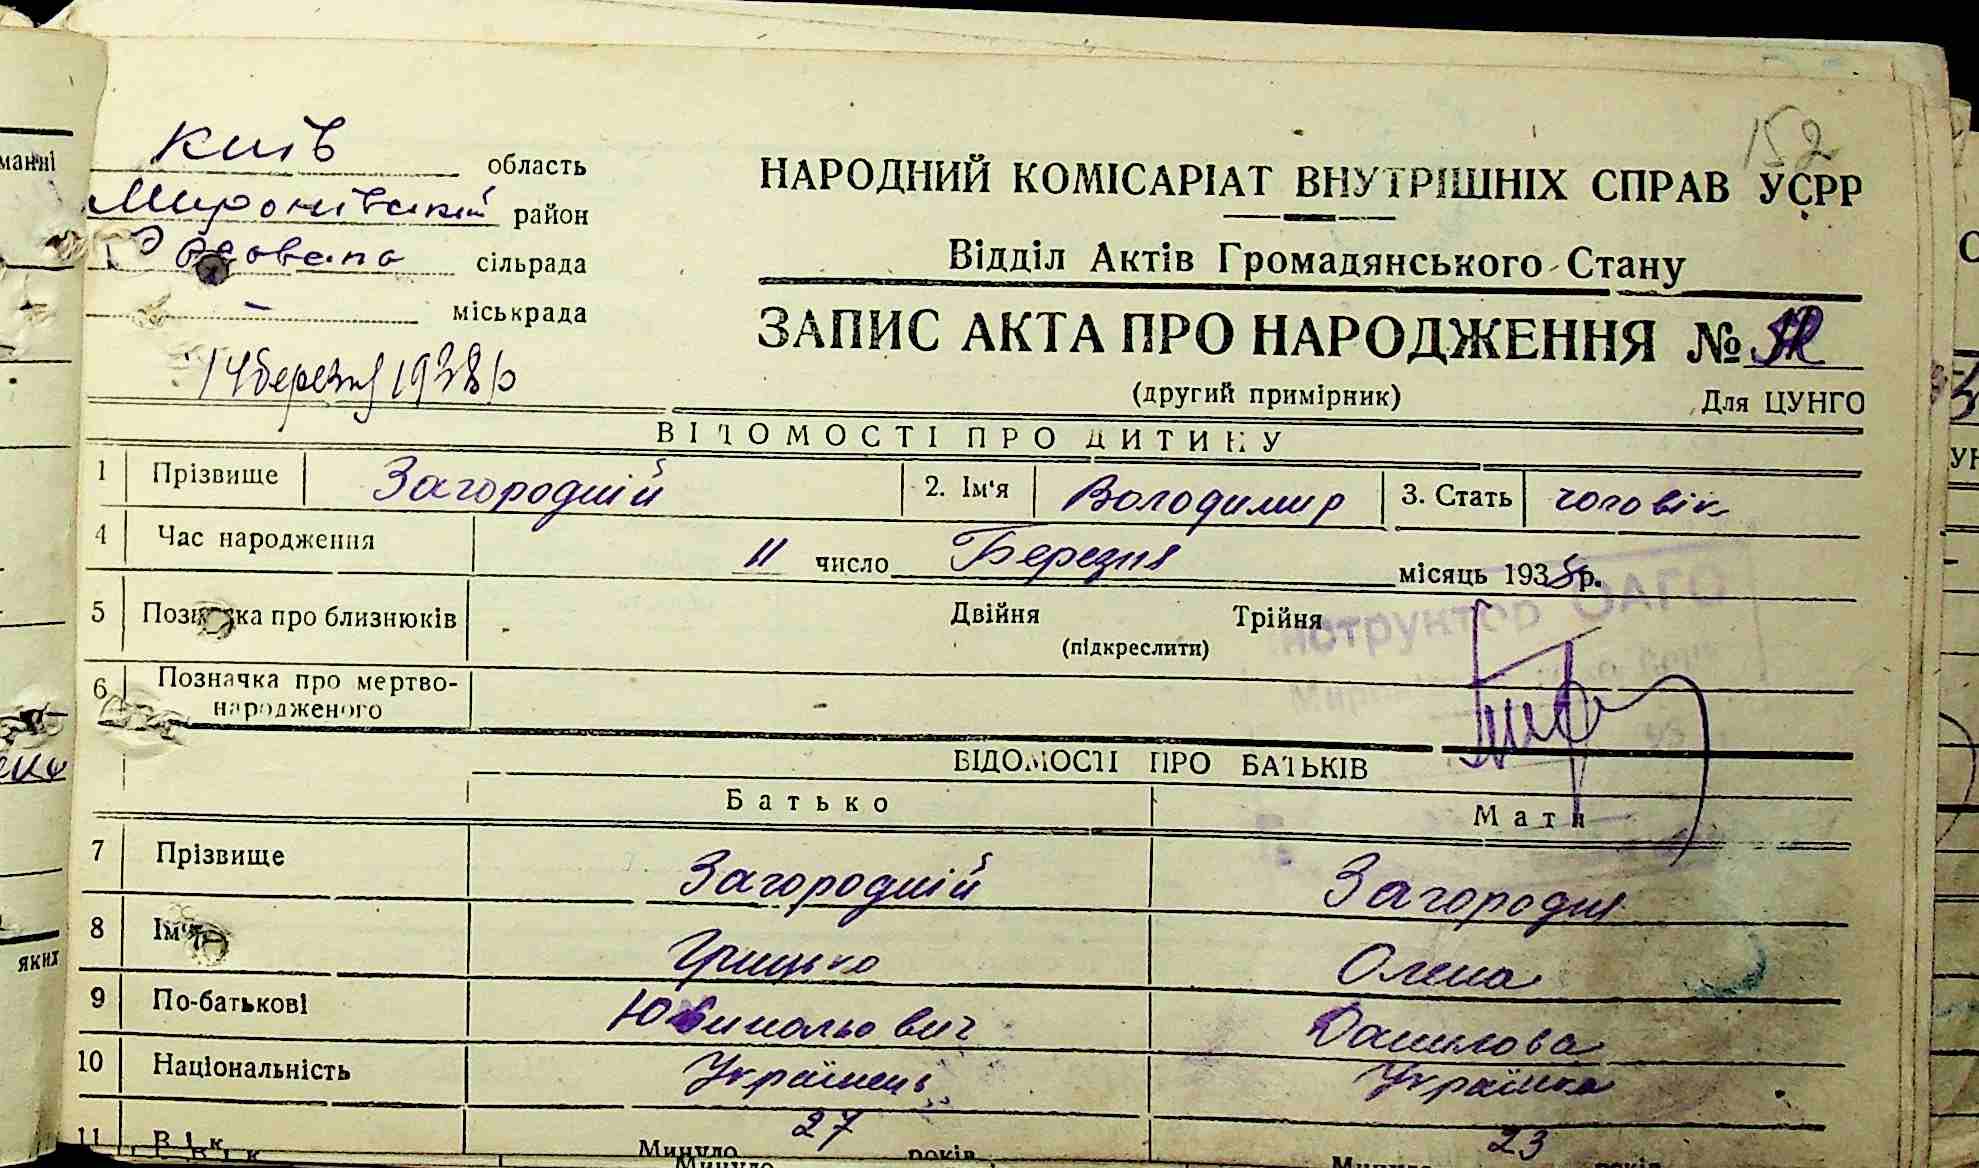 152
Київ область
Миронівський район
сільрада
- міськрада
14 березня 1938 р
НАРОДНИЙ КОМІСАРІАТ ВНУТРІШНІХ СПРАВ УСРР
Відділ Актів Громадянського Стану
ЗАПИС АКТА ПРО НАРОДЖЕННЯ №
(другий примірник) Для ЦУНГО
ВІДОМОСТІ ПРО ДИТИНУ
1 Прізвище Загородній 2. Ім'я Володимир 3. Стать чоловік
4 Час народження 11 число Березня місяць 1938 р.
5 Позначка про близнюків - Двійня Трійня
(підкреслити)
нструктор ОАГС
6 Позначка про мертво-
народженого -
ВІДОМОСТІ ПРО БАТЬКІВ
Батько Мати
7 Прізвище Загородній Загородня
8 Ім'я Грицько Олена
9 По-батькові Данилова
10 Національність Українець Українка
11 Вік Минуло 27 років Минуло 23 років
манні
яких